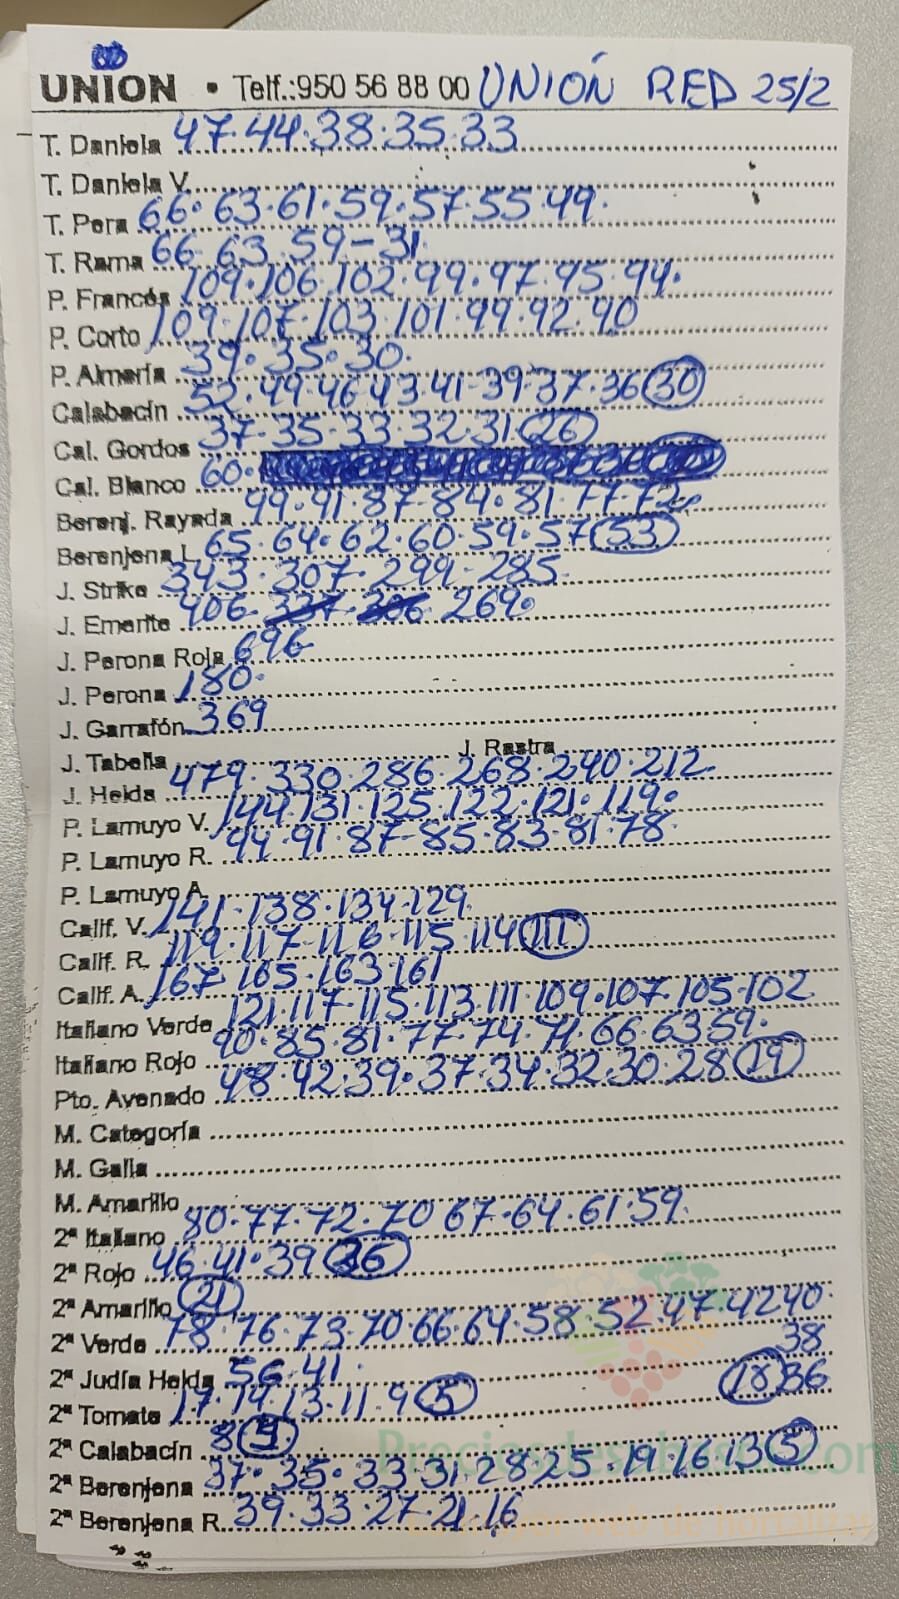 UNION • Telf.:950 56 88 00 UNIÓN RED 25/2
T. Daniela 47·44·38·35·33
T. Daniela V.
T. Pera 66·63·61·59·57·55·49·
T. Rama 66·63·59-31
P. Francés 109·106·102·99·97·95·94·
P. Corto 109·107·103·101·99·92·90
P. Almería 39·35·30·
Calabacín 52·49·46·43·41·39·37·36 30
Cal. Gordos 37·35·33·32·31 26
Cal. Blanco 60·
Berenj. Rayada 99·91·87·84·81·77·72
Berenjena L 65·64·62·60·59·57 53
J. Strike 343·307·299·285
J. Emerite 406· 337 306 269·
J. Perona Roja 696
J. Perona 180·
J. Garrafón 369
J. Tabella J. Rastra
J. Helda 479·330·286·268·240·212·
P. Lamuyo V. 144·131·125·122·121·119·
P. Lamuyo R. 94·91·87·85·83·81·78·
P. Lamuyo A.
Calif. V. 141·138·134·129
Calif. R. 119·117·116·115·114 111
Calif. A. 167·165·163·161
Italiano Verde 121·117·115·113·111·109·107·105·102
Italiano Rojo 90·85·81·77·74·71·66·63·59·
Pto. Avenado 48·42·39·37·34·32·30·28 19
M. Categoría
M. Galia
M. Amarillo
2ª Italiano 80·77·72·70·67·64·61·59
2ª Rojo 46·41·39 36
2ª Amarillo 21
2ª Verde 78·76·73·70·66·64·58·52·47·42 40·
38
2ª Judía Helda 56·41·
18 36
2ª Tomate 17·14·13·11·9 5
2ª Calabacín 8
2ª Berenjena 37·35·33·31·28·25·19·16·13 5
2ª Berenjena R. 39·33·27·21·16
Preciosdesubasta.com
web de hortalizas